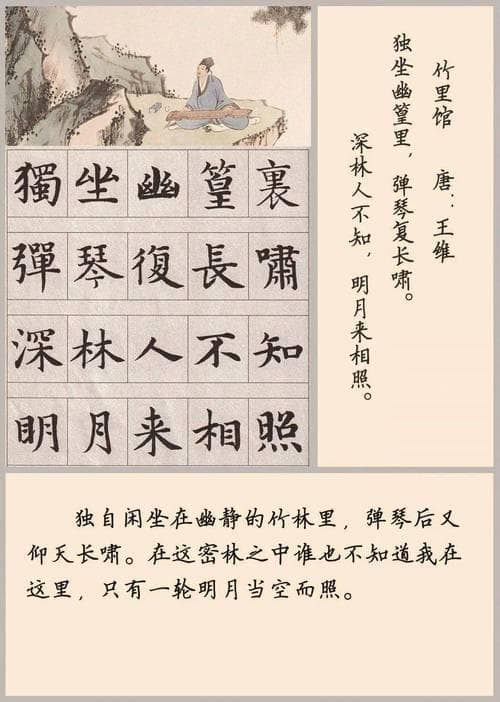 獨坐幽篁裏
彈琴復長嘯
深林人不知
明月来相照
竹里馆 唐：王维
独坐幽篁里，弹琴复长啸。
深林人不知，明月来相照。
独自闲坐在幽静的竹林里，弹琴后又
仰天长啸。在这密林之中谁也不知道我在
这里，只有一轮明月当空而照。